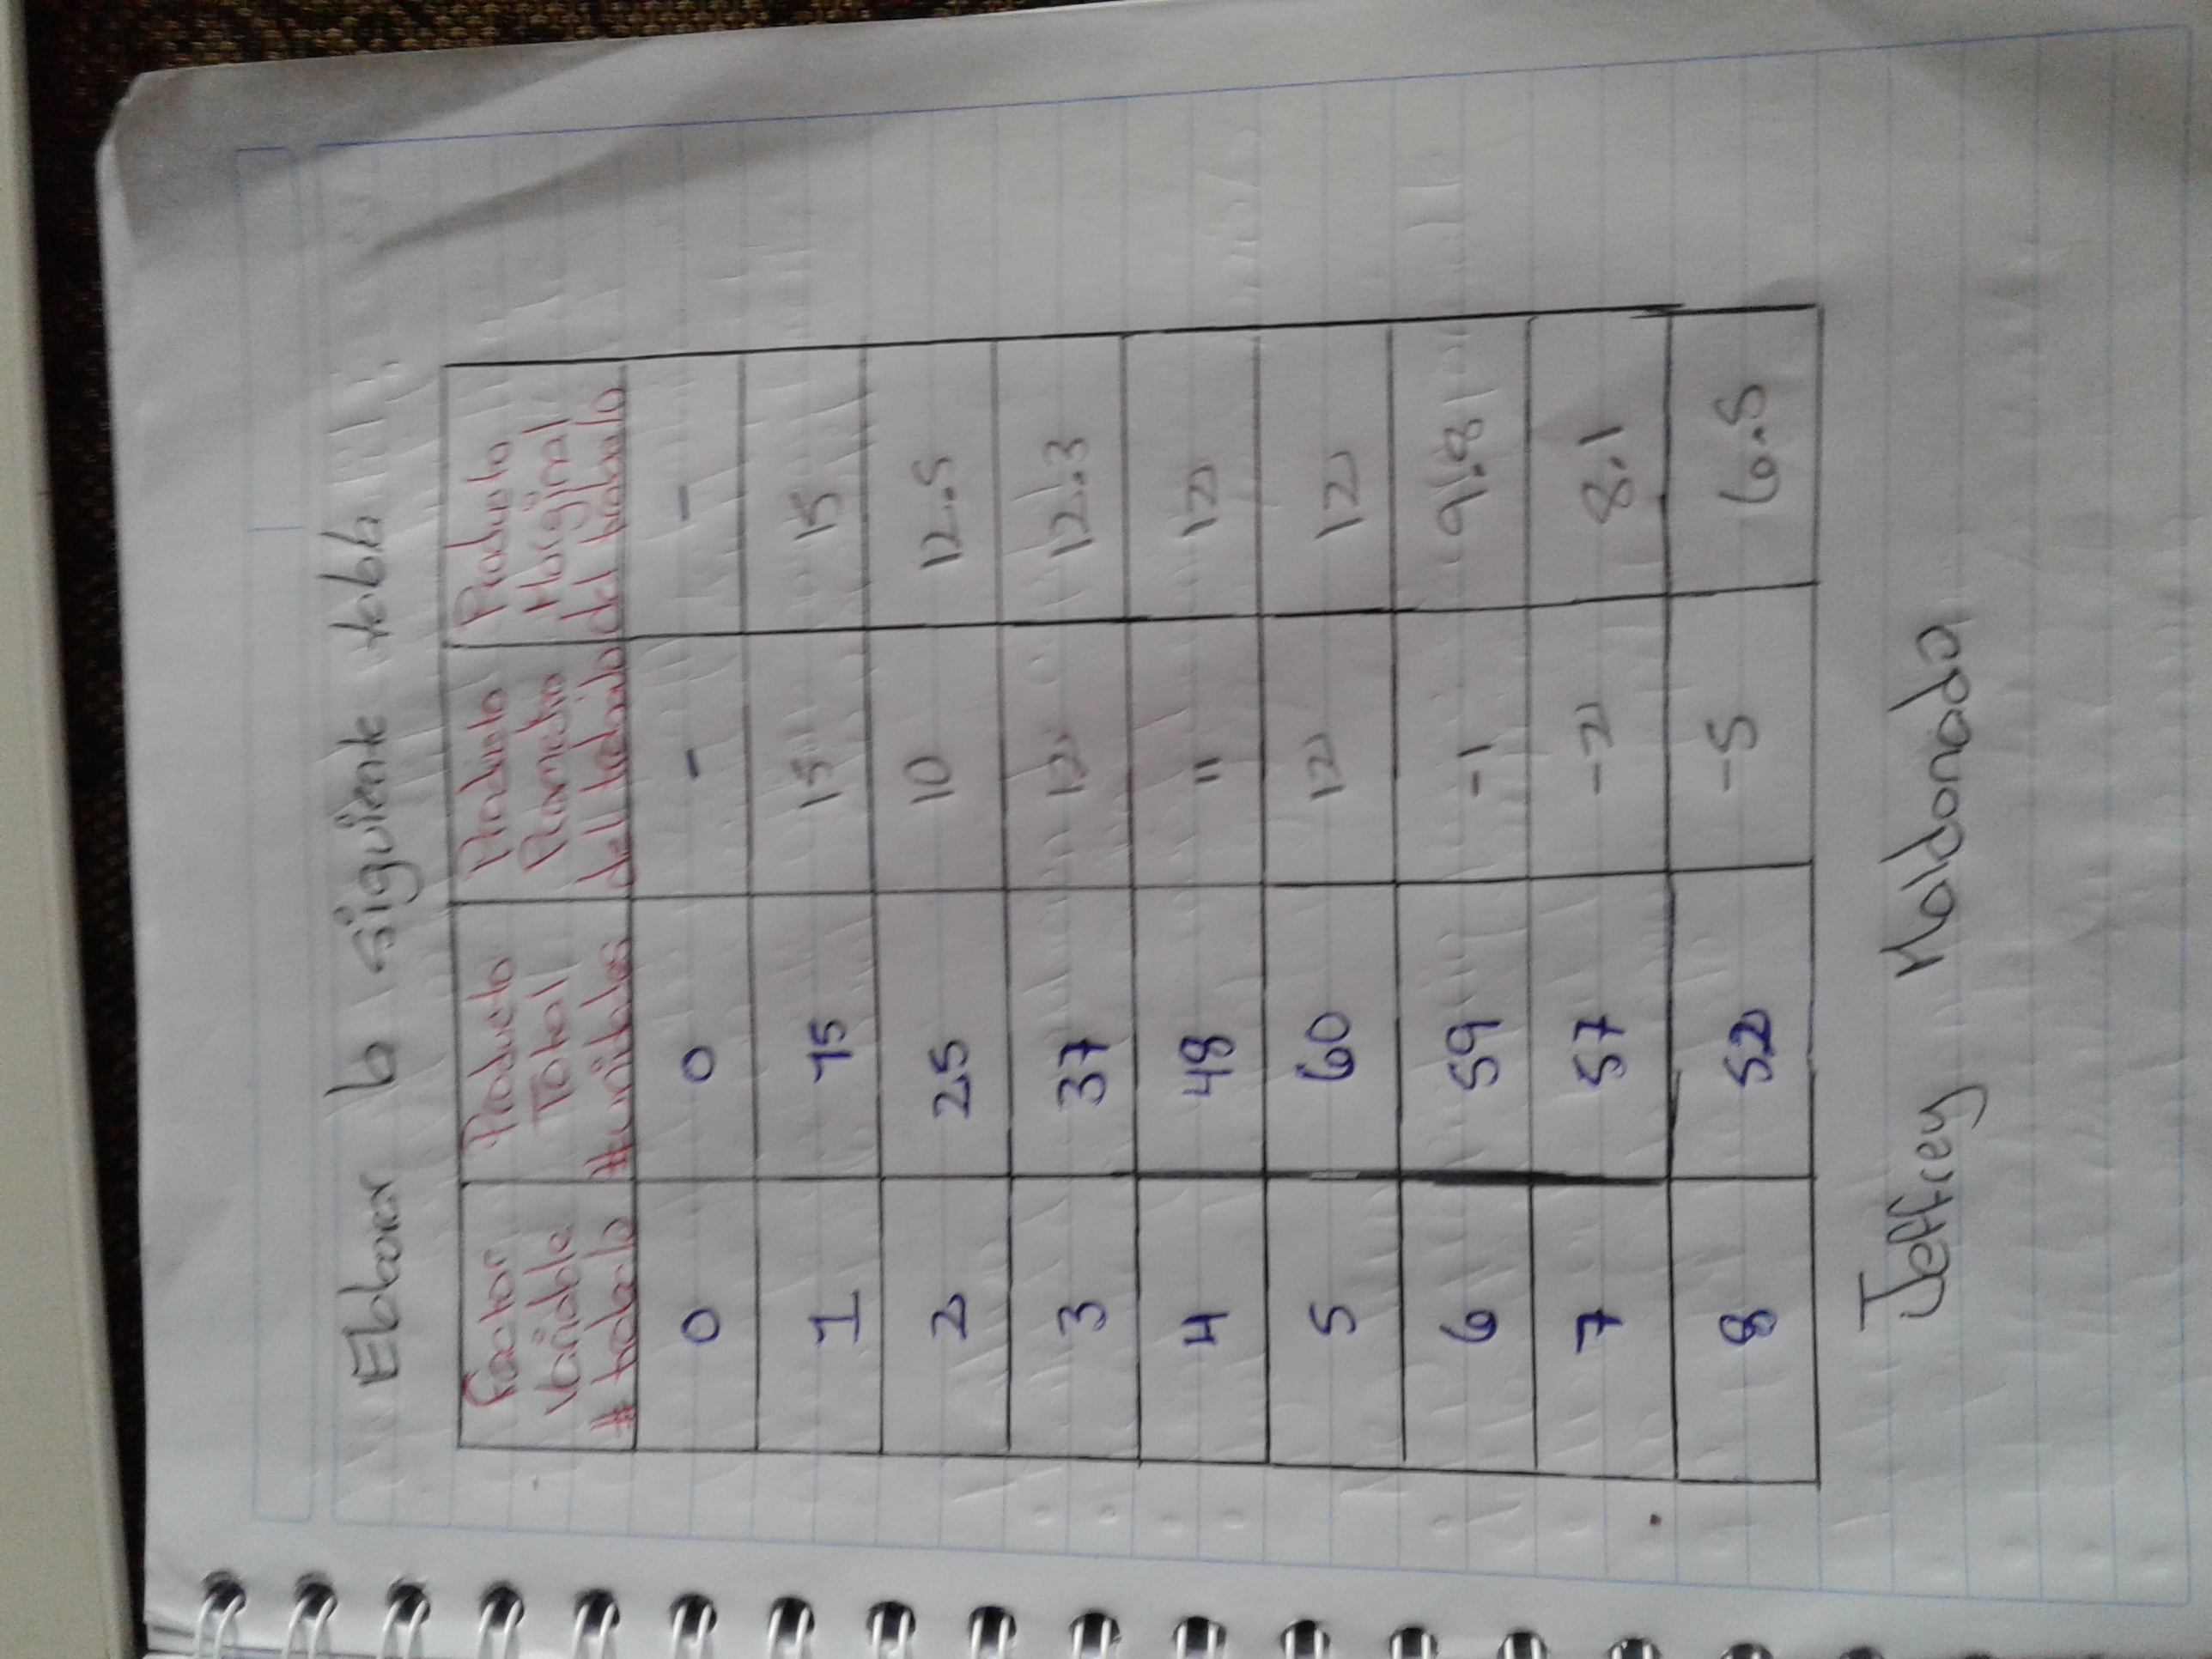 Elaborar la siguiente tabla:
Factor Variable # trabajo | Producto Total #unidades | Producto Promedio del trabajo | Producto Marginal del trabajo
0 | 0 | - | -
1 | 15 | 15 | 15
2 | 25 | 10 | 12.5
3 | 37 | 12 | 12.3
4 | 48 | 11 | 12
5 | 60 | 12 | 12
6 | 59 | -1 | 9.8
7 | 57 | -2 | 8.1
8 | 52 | -5 | 6.5
Jeffrey Maldonado